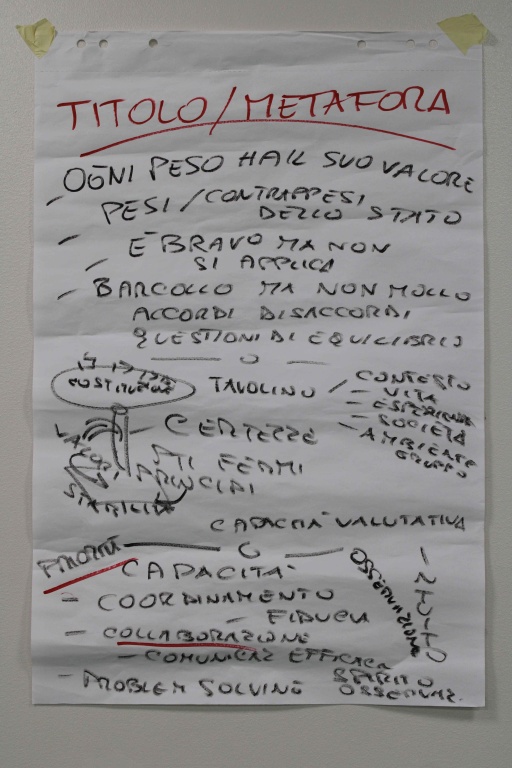 TITOLO/METAFORA
OGNI PESO HA IL SUO VALORE
- PESI/CONTRAPPESI
DELLO STATO
- È BRAVO MA NON
- SI APPLICA
- BARCOLLO MA NON MOLLO
ACCORDI DISACCORDI
QUESTIONI DI EQUILIBRIO
COSTITUZIONE
TAVOLINO
CONTESTO
- VITA
- ESPERIENZA
- SOCIETÀ
- AMBIENTE
GRUPPO
- CERTEZZE
VALORI
PTI FERMI
PRINCIPI
STABILITÀ
CAPACITÀ VALUTATIVA
PRIORITÀ
CAPACITÀ
- COORDINAMENTO
- FIDUCIA
- COLLABORAZIONE
- COMUNICAZ EFFICACE
- PROBLEM SOLVING
SPIRITO
OSSERVAZ.
OSSERVAZIONE
- INTUITO